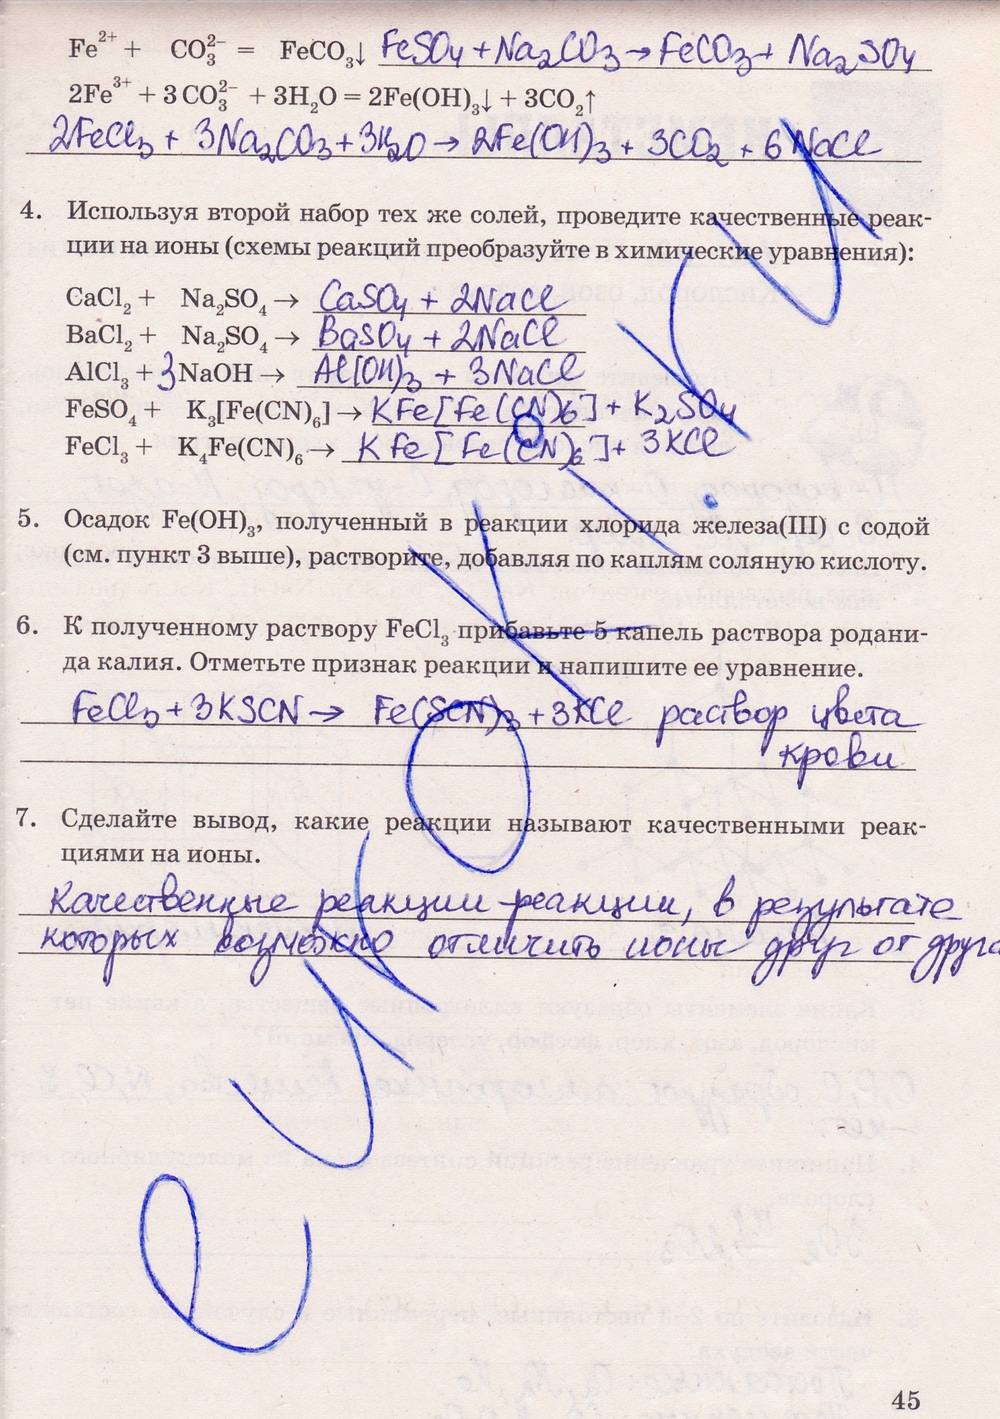 Fe²⁺ + CO₃²⁻ = FeCO₃↓ FeSO₄ + Na₂CO₃ → FeCO₃ + Na₂SO₄
2Fe³⁺ + 3CO₃²⁻ + 3H₂O = 2Fe(OH)₃↓ + 3CO₂↑
2FeCl₃ + 3Na₂CO₃ + 3H₂O → 2Fe(OH)₃ + 3CO₂ + 6NaCl
4. Используя второй набор тех же солей, проведите качественные реак-
ции на ионы (схемы реакций преобразуйте в химические уравнения):
CaCl₂ + Na₂SO₄ → CaSO₄ + 2NaCl
BaCl₂ + Na₂SO₄ → BaSO₄ + 2NaCl
AlCl₃ + 3NaOH → Al(OH)₃ + 3NaCl
FeSO₄ + K₃[Fe(CN)₆] → KFe[Fe(CN)6] + K₂SO₄
FeCl₃ + K₄Fe(CN)₆ → KFe[Fe(CN)₆] + 3KCl
5. Осадок Fe(OH)₃, полученный в реакции хлорида железа(III) с содой
(см. пункт 3 выше), растворите, добавляя по каплям соляную кислоту.
6. К полученному раствору FeCl₃ прибавьте 5 капель раствора родани-
да калия. Отметьте признак реакции и напишите ее уравнение.
FeCl₃ + 3KSCN → Fe(SCN)₃ + 3KCl раствор цвета
крови
7. Сделайте вывод, какие реакции называют качественными реак-
циями на ионы.
Качественные реакции - реакции, в результате
которых возможно отличить ионы друг от друга
euroki.ru
45